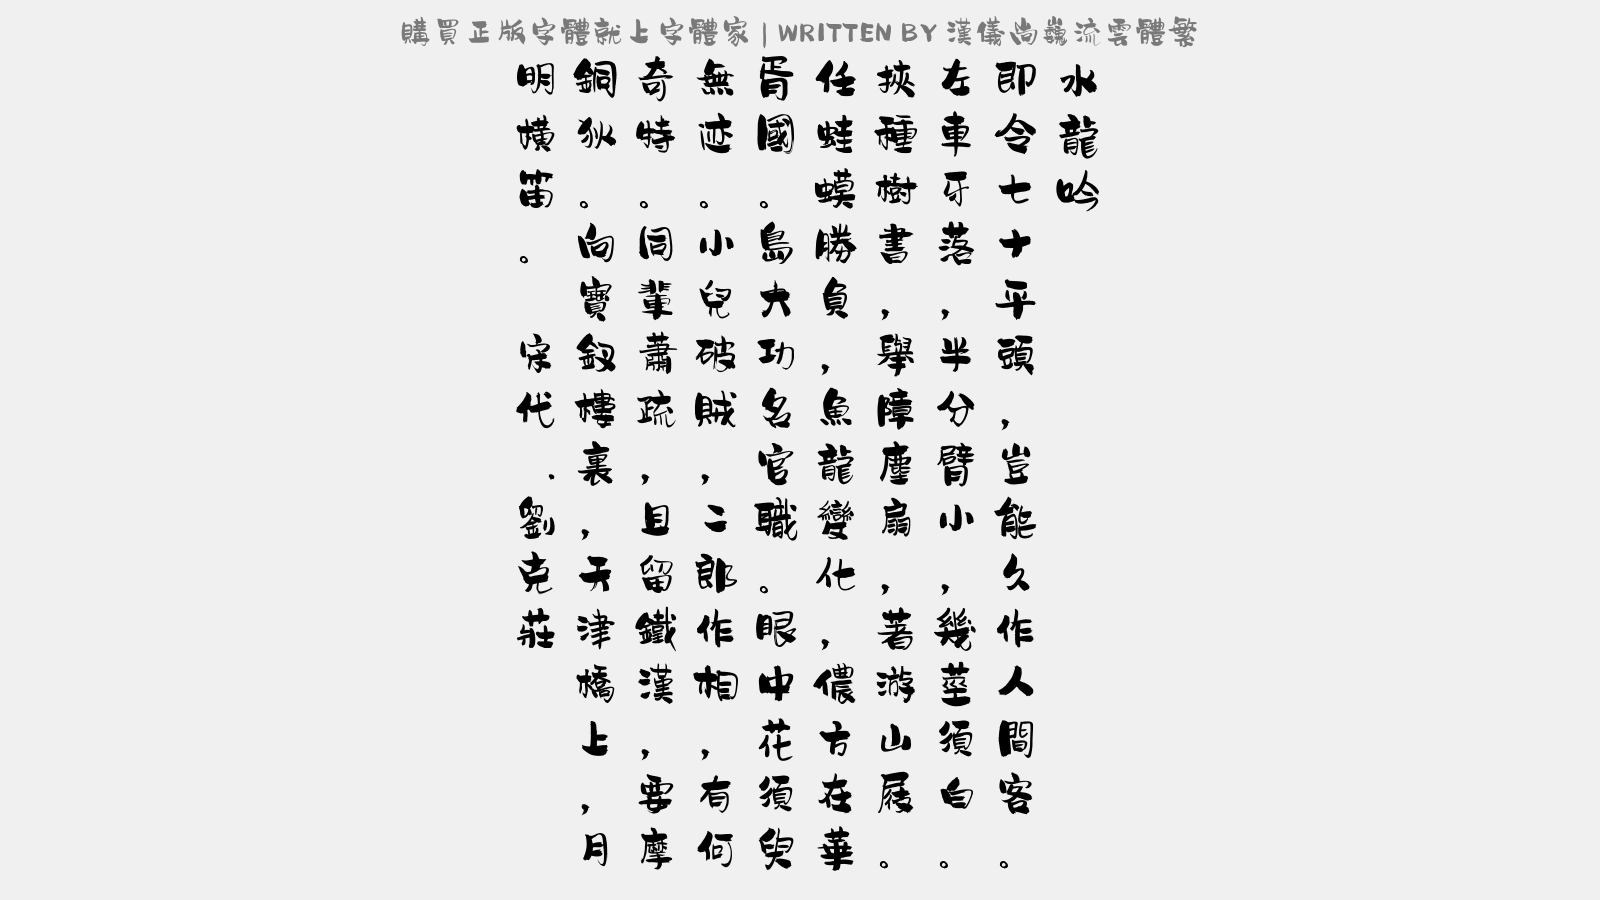 購買正版字體就上字體家 | WRITTEN BY 漢儀尚巍流雲體繁
水龍吟
即令七十平頭，豈能久作人間客。
左車牙落，半分臂小，幾莖須白。
挾種樹書，舉障塵扇，著游山屐。
任蛙蟆勝負，魚龍變化，儂方在華
胥國。島大功名官職。眼中花須臾
無迹。小兒破賊，二郎作相，有何
奇特。同輩蕭疏，且留鐵漢，要摩
銅狄。向寶釵樓裏，天津橋上，月
明橫笛。 宋代.劉克莊